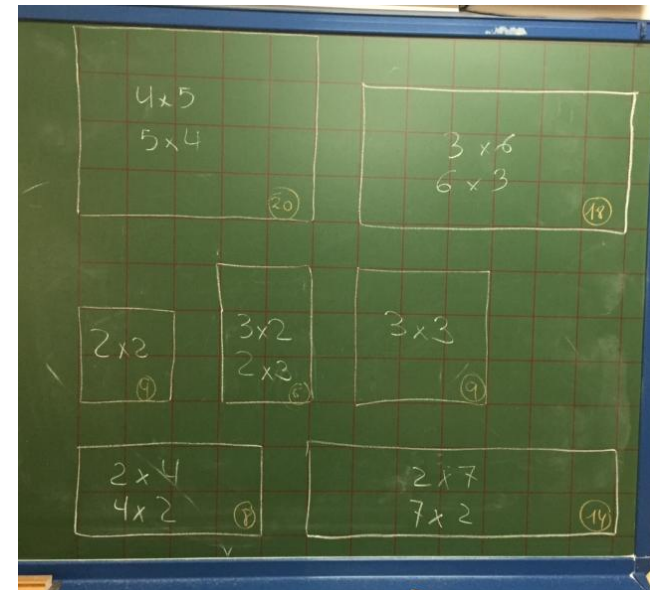 4x5
5x4
20
3x6
6x3
18
2x2
4
3x2
2x3
6
3x3
9
2x4
4x2
8
2x7
7x2
14